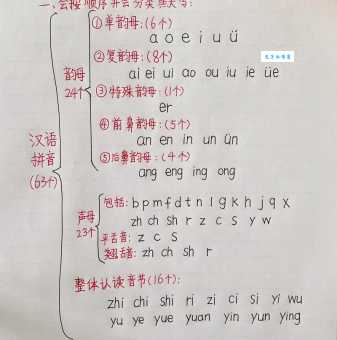 一、会按顺序并会分类
①单韵母:(6个)
a o e i u ü
②复韵母:(8个)
ai ei ui ao ou iu ie üe
韵母
24个
③特殊韵母:(1个)
er
④前鼻韵母:(5个)
an en in un ün
⑤后鼻韵母:(4个)
ang eng ing ong
汉语
拼音
(63个)
声母
23个
包括: b p m f d t n l g k h j q x
zh ch sh r z c s y w
平舌音: z c s
翘舌音: zh ch sh r
整体认读音节(16个):
zhi chi shi ri zi ci si yi wu
yu ye yue yuan yin yun ying